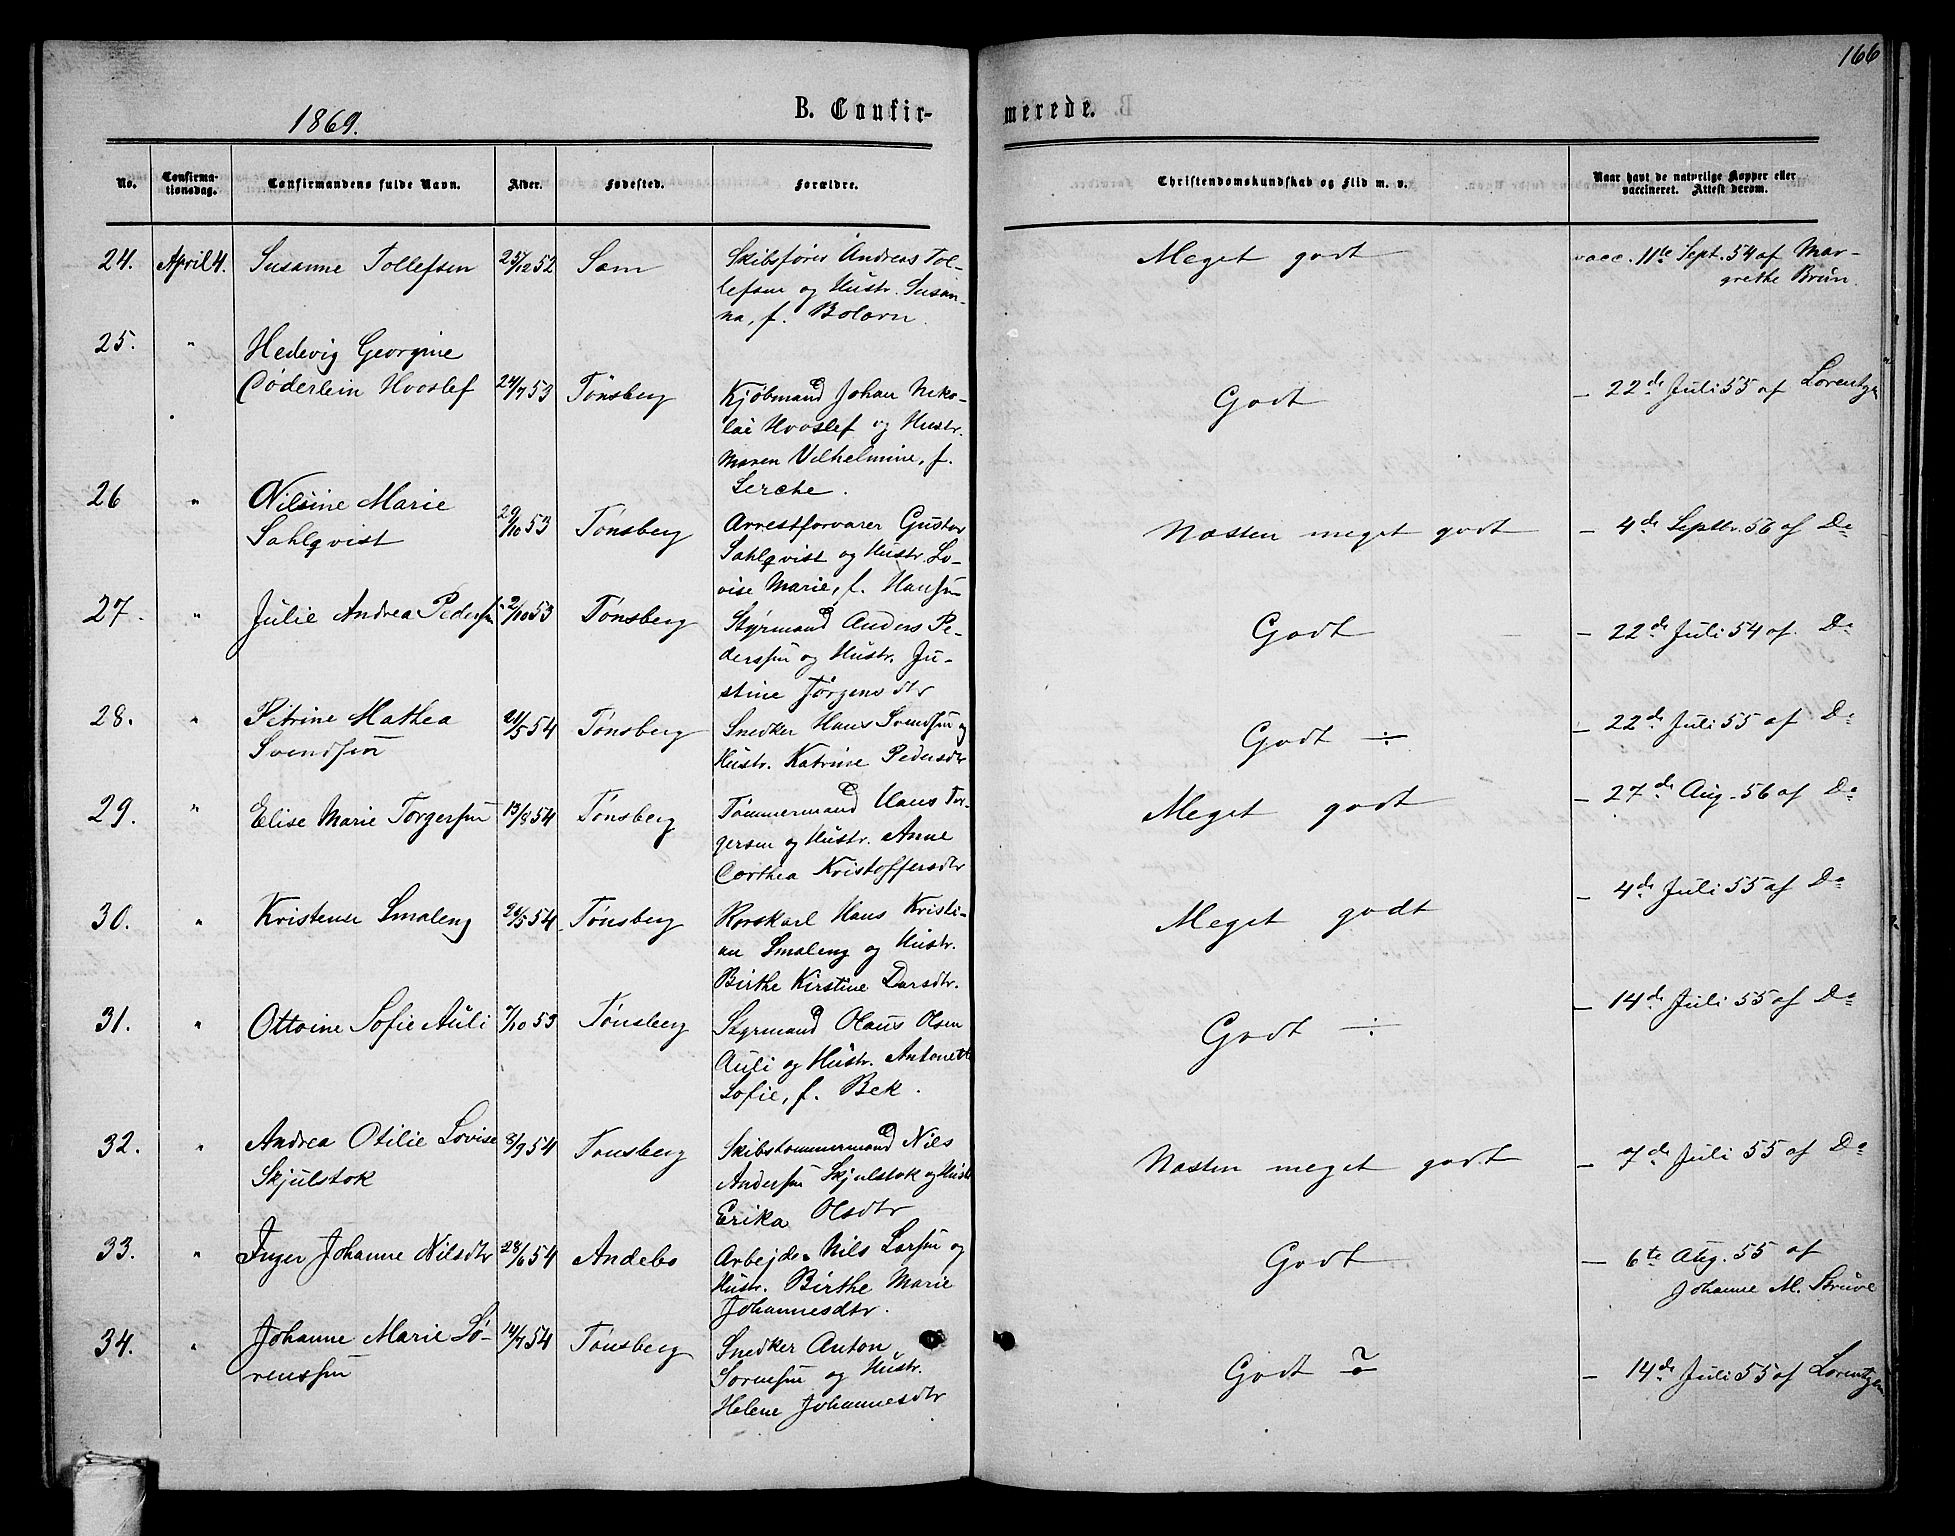 166
1869.
B. Confirmerede.
No. Confirmationsdag. Confirmandens fulde Navn. Alder. Fødested. Forældre. Christendomskundskab og Flid m. v. Naar havt de naturlige Kopper eller vaccineret. Attest derom.
24. April 4. Susanne Tollefsen 25/12 52 Sem Skibsfører Andreas Tol- Meget godt vacc. 11te Sept. 54 af Mar-
lefsen og Hustr. Susan- grethe Brün.
na, f. Bolærn.
25. " Hedevig Georgine
Cøderlein Hvoslef 24/7 53 Tønsberg Kjøbmand Johan Neko- Godt — 22de Juli 55 af Lorentzen
lai Hvoslef og Hustr.
Maren Vilhelmine, f.
Lerche.
26 " Nilsine Marie
Sahlqvist 29/10 53 Tønsberg Arrestforvarer Gustav Næsten meget godt — 4de Septbr. 56 af Do
Sahlqvist og Hustr. Lo-
vise Marie, f. Hansen
27. " Julie Andrea Pedersen 2/10 53 Tønsberg Styrmand Anders Pe- Godt — 22de Juli 54 af. Do
derssen og Hustr. Ju-
stine Jørgensdtr
28. " Petrine Mathea 21/5 54 Tønsberg Snedker Hans Svendsen og Godt ÷ — 22de Juli 55 af Do
Svendsen Hustr. Katrine Pedersdtr
29. " Elise Marie Torgersen 13/8 54 Tønsberg Tømmermand Hans Tor- Meget godt — 27de Aug. 56 af Do
gersen og Hustr. Anne
Corthea Kristoffersdtr
30. " Kristener Smaleng 26/5 54 Tønsberg Rorskarl Hans Kristi- Meget godt — 4de Juli 55 af Do
an Smaleng og Hustr.
Birthe Kirstine Larsdtr.
31. " Ottoine Sofie Auli 7/10 53 Tønsberg Styrmand Olaus Olsen Godt ÷ — 14de Juli 55 af Do
Auli og Hustr. Antonette
Sofie, f. Bek.
32. " Andrea Otilie Lovise 8/9 54 Tønsberg Skibstømmermand Nils Næsten meget godt — 7de Juli 55 af Do
Skjulstok Andersen Skjulstok og Hustr.
Erika Olsdtr
33. " Inger Johanne Nilsdtr 28/6 54 Andebo Arbejder Nils Larsen og Godt — 6te Aug. 55 af
Hustr. Birthe Marie Johanne M. Strüve
Johannesdtr.
34. " Johanne Marie Sø- 14/7 54 Tønsberg Snedker Anton Godt — 14de Juli 55 af Lorentzen
renssen Sørensen og Hustr.
Helene Johannesdtr